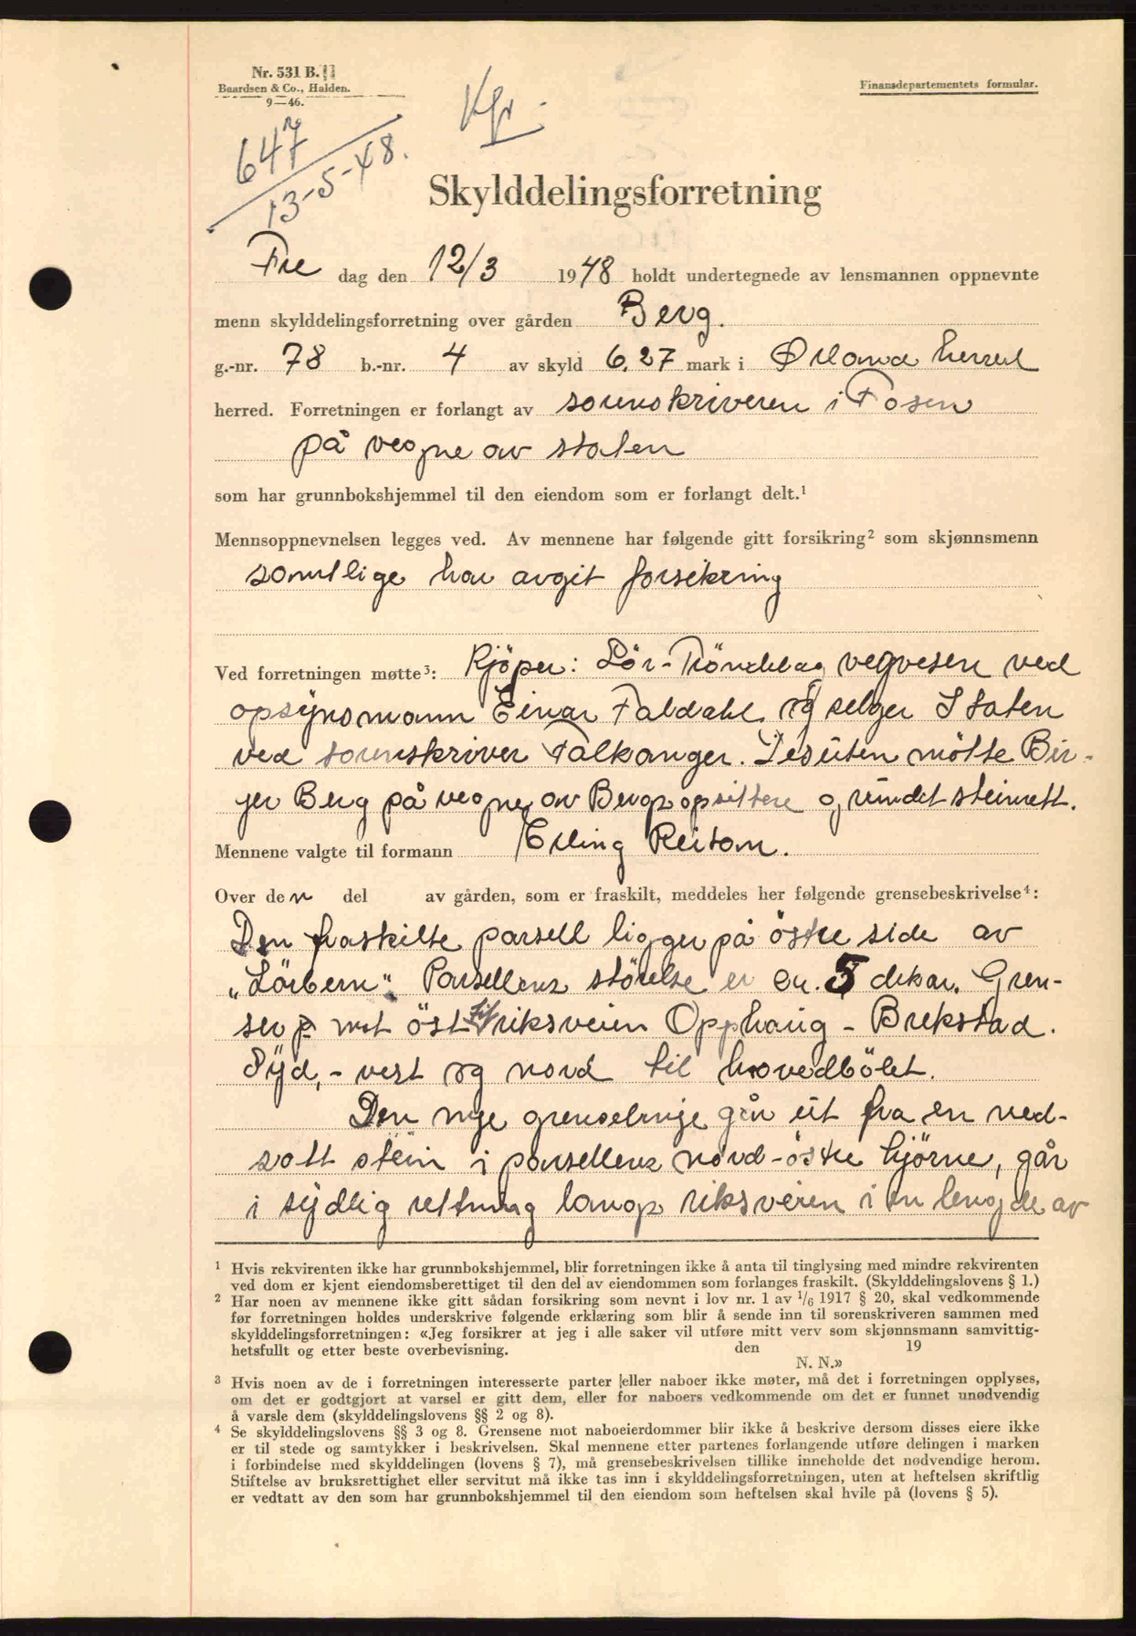 Nr. 531 B. II
Baardsen & Co., Halden.
9—46.
Finansdepartementets formular.
647
13-5-48.
Skylddelingsforretning
Fre dag den 12/3 1948 holdt undertegnede av lensmannen oppnevnte
menn skylddelingsforretning over gården Berg.
g.-nr. 78 b.-nr. 4 av skyld 6,27 mark i Ørland herred
herred. Forretningen er forlangt av sorenskriveren i Fosen
på vegne av staten
som har grunnbokshjemmel til den eiendom som er forlangt delt.¹
Mennsoppnevnelsen legges ved. Av mennene har følgende gitt forsikring² som skjønnsmenn
samtlige har avgit forsikring
Ved forretningen møtte³: Kjöper: Sör-Tröndelag vegvesen ved
opsynsmann Einar Faldahl og selger Staten
ved sorenskriver Falkanger. Desuten mötte Bir-
ger Berg på vegne av Bergsopsittere
Mennene valgte til formann Erling Reitan.
Over den del av gården, som er fraskilt, meddeles her følgende grensebeskrivelse⁴:
Den fraskilte parsell ligger på östre side av
Parsellens störelse er ca. 5 dekar. Gren-
ser mot öst til riksveien Opphaug - Brekstad.
Syd, - vest og nord til hovedbölet.
Den nye grenselinje går ut fra en ned-
satt stein i parsellens nord-östre hjörne, går
i sydlig retning langs riksveien i en lengde av
¹ Hvis rekvirenten ikke har grunnbokshjemmel, blir forretningen ikke å anta til tinglysing med mindre rekvirenten
ved dom er kjent eiendomsberettiget til den del av eiendommen som forlanges fraskilt. (Skylddelingslovens § 1.)
² Har noen av mennene ikke gitt sådan forsikring som nevnt i lov nr. 1 av ¹/₆ 1917 § 20, skal vedkommende
før forretningen holdes underskrive følgende erklæring som blir å sende inn til sorenskriveren sammen med
skylddelingsforretningen: «Jeg forsikrer at jeg i alle saker vil utføre mitt verv som skjønnsmann samvittig-
hetsfullt og etter beste overbevisning. den 19
N. N.»
³ Hvis noen av de i forretningen interesserte parter eller naboer ikke møter, må det i forretningen opplyses,
om det er godtgjort at varsel er gitt dem, eller for naboers vedkommende om det er funnet unødvendig
å varsle dem (skylddelingslovens §§ 2 og 8).
⁴ Se skylddelingslovens §§ 3 og 8. Grensene mot naboeierdommer blir ikke å beskrive dersom disses eiere ikke
er til stede og samtykker i beskrivelsen. Skal mennene etter partenes forlangende utføre delingen i marken
i forbindelse med skylddelingen (lovens § 7), må grensebeskrivelsen tillike inneholde det nødvendige herom.
Stiftelse av bruksrettighet eller servitut må ikke tas inn i skylddelingsforretningen, uten at heftelsen skriftlig
er vedtatt av den som har grunnbokshjemmel til den eiendom som heftelsen skal hvile på (lovens § 5).